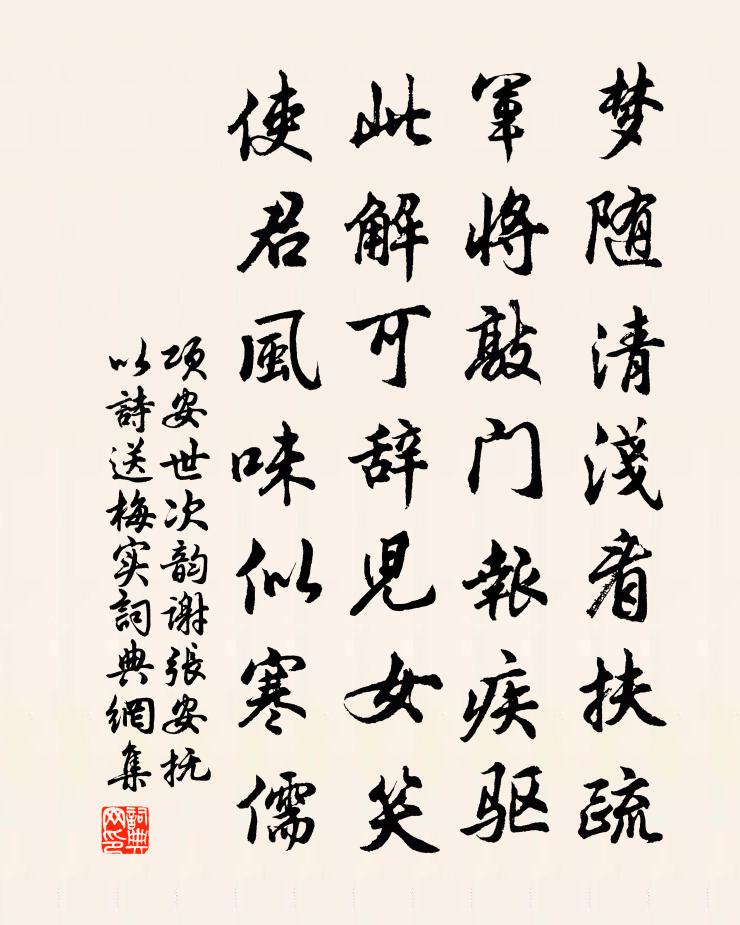 梦随清淺看扶疏
軍將敲门報疾驱
此解可辞児女笑
使君風味似寒儒
项安世次韵谢張安抚
以詩送梅实詞典網集
詞典
网印